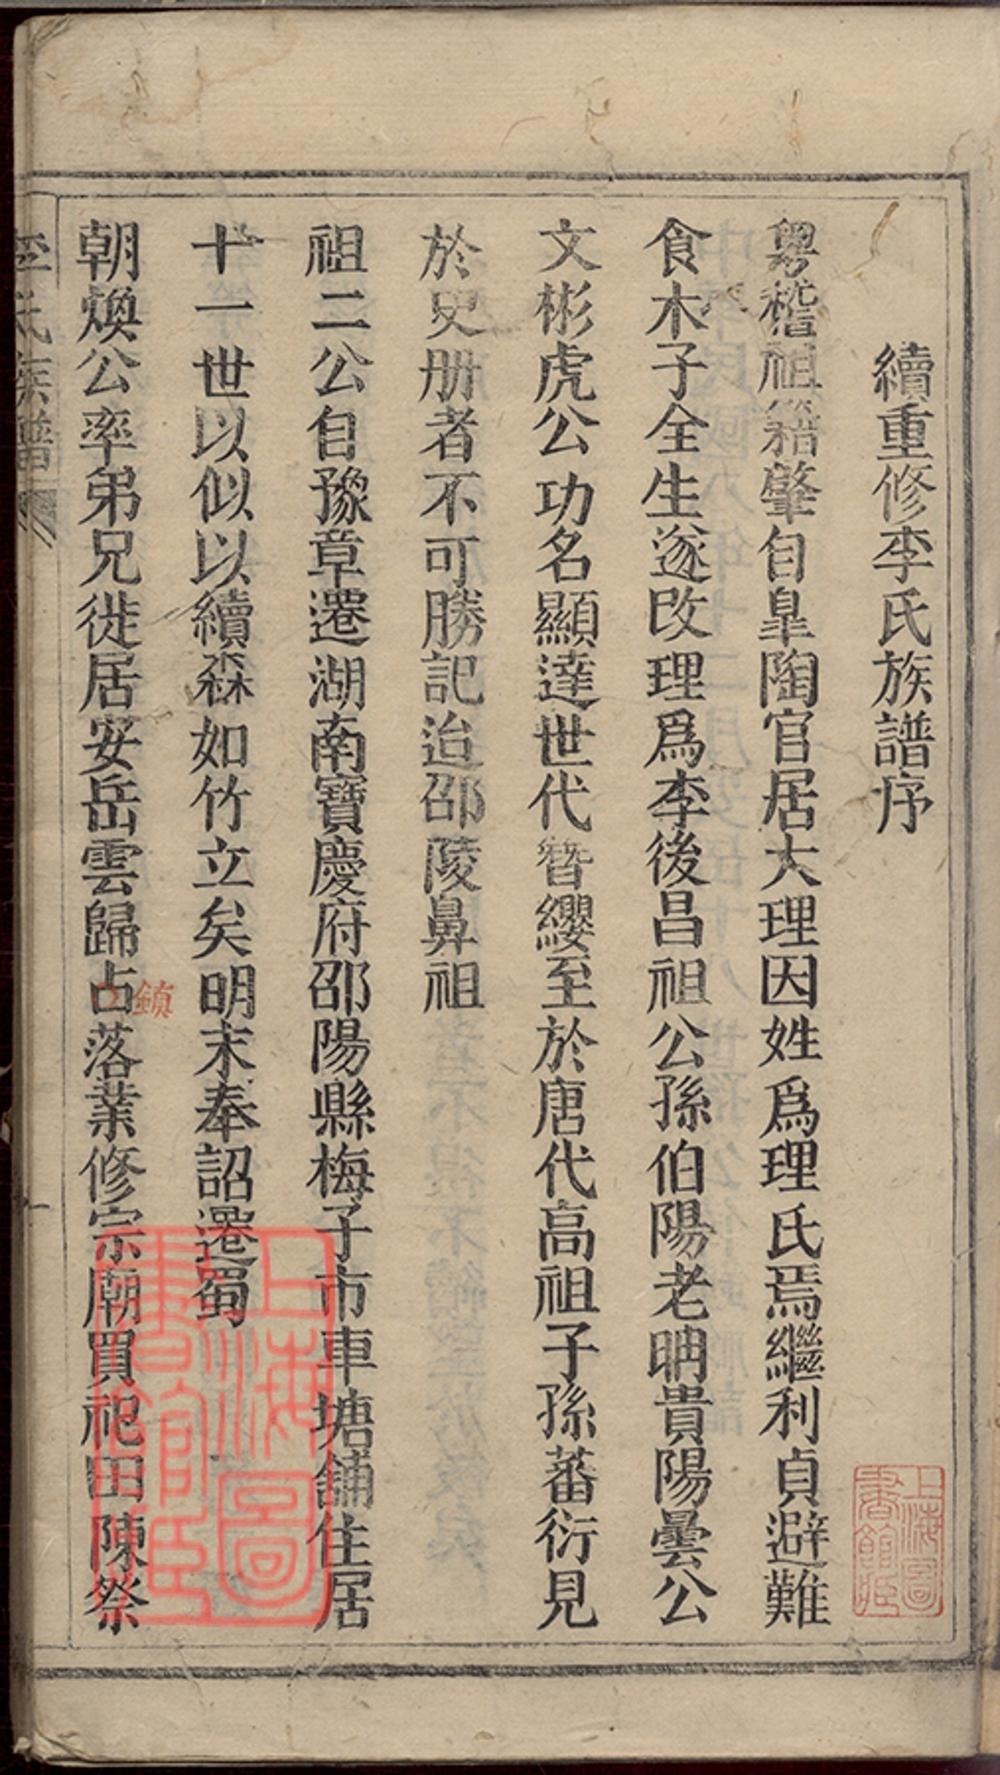 續重修李氏族譜序
粵稽祖籍肇自臯陶官居大理因姓爲理氏焉繼利貞避難
食木子全生遂改理爲李後昌祖公孫伯陽老聃貴陽曇公
文彬虎公功名顯達世代簪纓至於唐代高祖子孫蕃衍見
於史册者不可勝記迨邵陵鼻祖
祖二公自豫章遷湖南寶慶府邵陽縣梅子市車塘舖住居
十一世以似以續森如竹立矣明末奉詔遷蜀
朝煥公率弟兄徙居安岳雲歸占落業修宗廟買祀田陳祭
鎮
李氏族譜
一
上海圖書館藏
上海圖書館藏